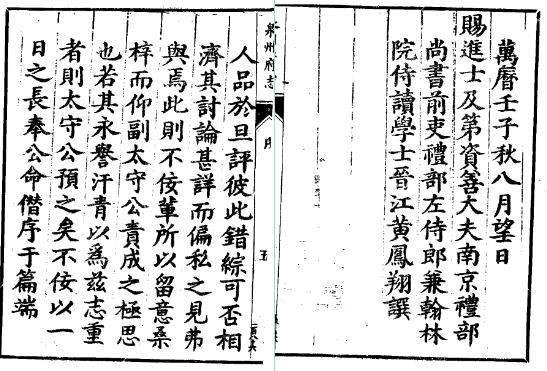 萬曆壬子秋八月望日
賜進士及第資善大夫南京禮部
尚書前吏禮部左侍郎兼翰林
院侍讀學士晉江黃鳳翔譔
泉州府志
序
五
人品於旦評彼此錯綜可否相
濟其討論甚詳而偏私之見弗
與焉此則不佞輩所以留意桑
梓而仰副太守公責成之極思
也若其永譽汗青以爲茲志重
者則太守公預之矣不佞以一
日之長奉公命僭序于篇端